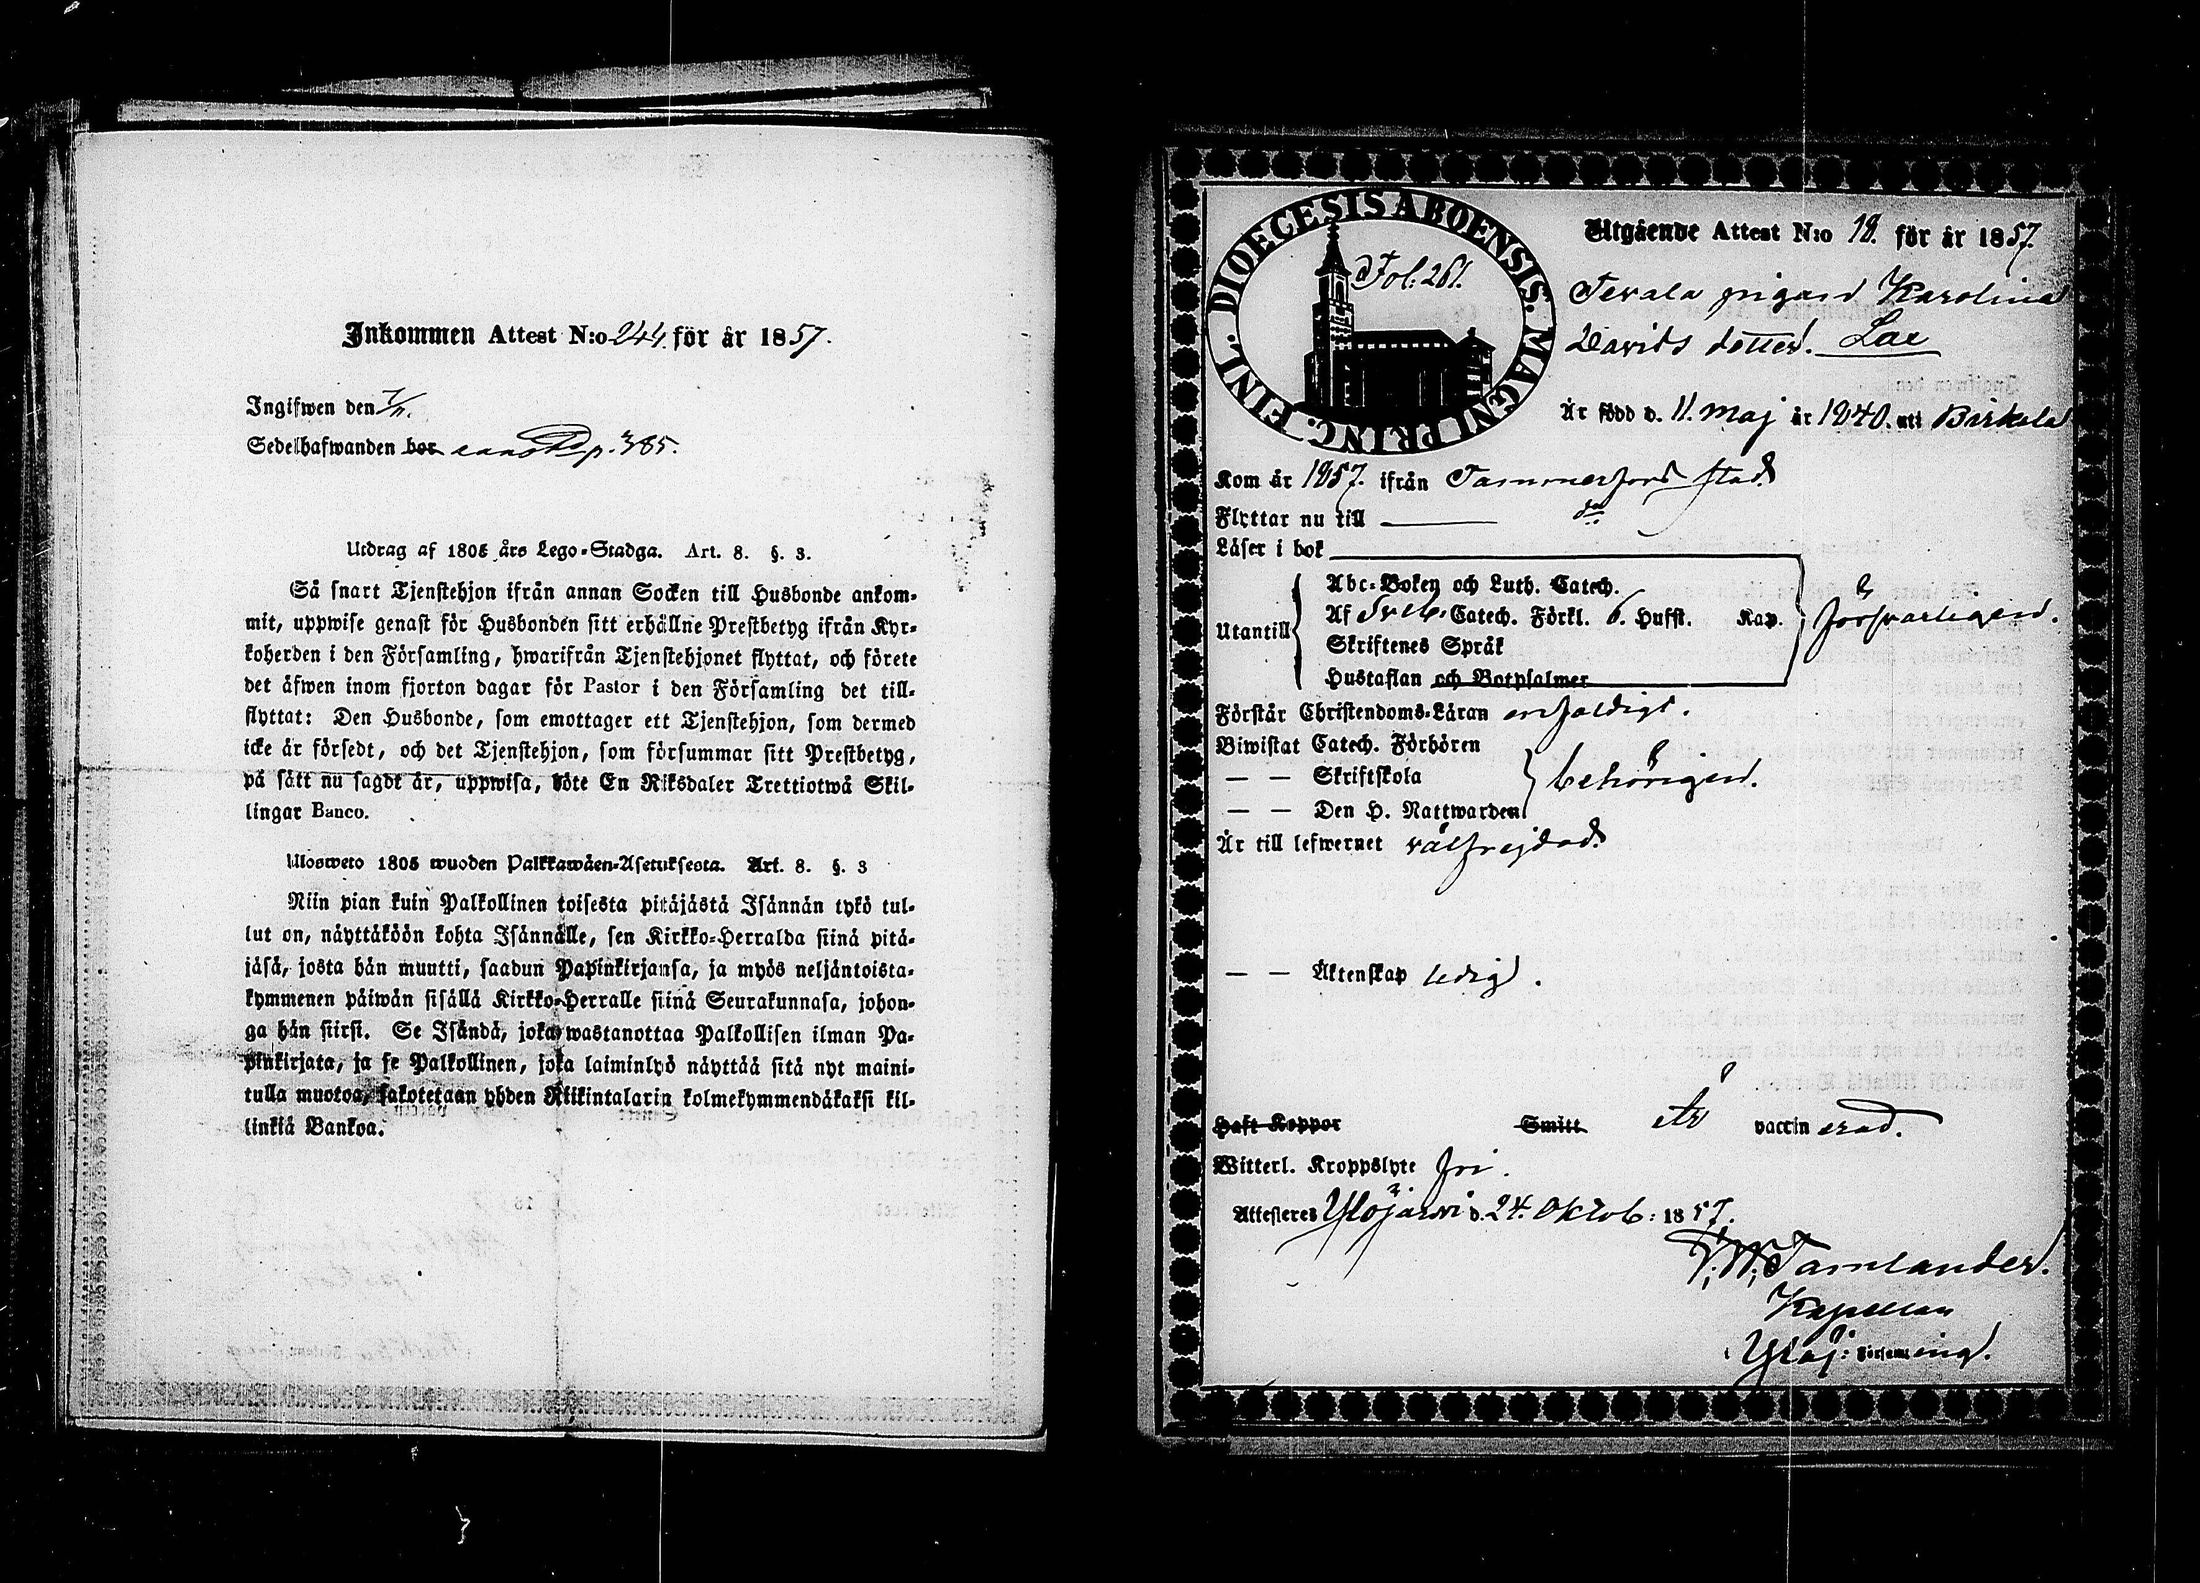 Inkommen Attest N:o 244. för år 1857.
Ingifwen den 7/11.
Sedelhafwanden bor p. 385.
Utdrag af 1805 års Lego-Stadga. Art. 8. §. 3.
Så snart Tjenstehjon ifrån annan Socken till Husbonde ankom-
mit, uppwise genast för Husbonden sitt erhållne Prestbetyg ifrån Kyr-
koherden i den Församling, hwarifrån Tjenstehjonet flyttat, och förete
det äfwen inom fjorton dagar för Pastor i den Församling det till-
flyttat: Den Husbonde, som emottager ett Tjenstehjon, som dermed
icke är försedt, och det Tjenstehjon, som försummar sitt Prestbetyg,
på sätt nu sagdt är, uppwisa, böte En Riksdaler Trettiotwå Skil-
lingar Banco.
Ulosweto 1805 wuoden Palkkawäen-Asetuksesta. Art. 8. §. 3
Niin pian kuin Palkollinen toisesta pitäjästä Isännän tykö tul-
lut on, näyttäköön kohta Isännälle, sen Kirkko-Herralda siinä pitä-
jäsä, josta hän muutti, saadun Papinkirjansa, ja myös neljäntoista-
kymmenen päiwän sisällä Kirkko-Herralle siinä Seurakunnasa, johon-
ga hän siirsi. Se Isändä, joka wastanottaa Palkollisen ilman Pa-
pinkirjata, ja se Palkollinen, joka laiminlyö näyttää sitä nyt maini-
tulla muotoa, sakotetaan yhden Riikintalarin kolmekymmendäkaksi kil-
linkiä Bankoa.
DIOECESIS ABOENSIS. MAGNI PRINC. FINL.
Fol: 261.
Utgående Attest N:o 18. för år 1857.
Terala pigan Karolina
Davids dotter. Lax
Är född d. 11. Maj år 1840. uti Birkala
Kom år 1857. ifrån Tammerfors stad
Flyttar nu till — do
Läser i bok
Utantill
Abc-Boken och Luth. Catech.
Af Sveb. Catech. Förkl. 6. Hufst. Kap.
Skriftenes Språk
Hustaflan och Botpsalmer
försvarligen.
Förstår Christendoms-Läran enfaldigt.
Biwistat Catech. Förhören
— — Skriftskola
— — Den H. Nattwarden
behörigen.
Är till lefwernet välfrejdad.
— — Äktenskap ledig.
Haft Koppor Smitt är vaccinerad.
Witterl. Kroppslyte fri.
Attesteres Ylöjärvi d. 24. Oktob: 1857.
Tamlander.
Kapellan
Ylöj: Församling.